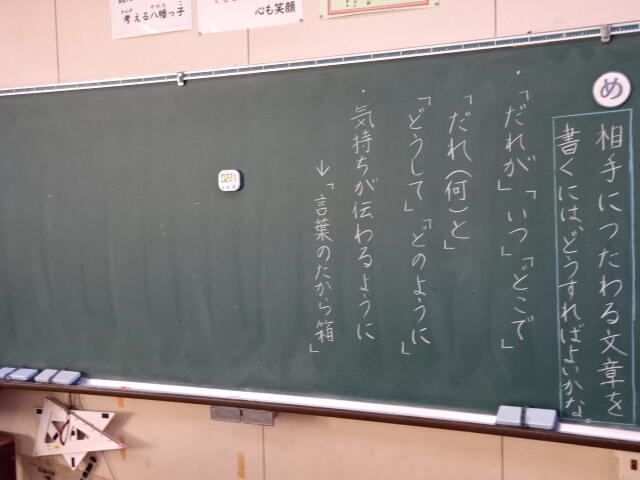 考える八幡っ子
かんが
やわた
こ
心も笑顔
め
相手につたわる文章を
書くには、どうすればよいかな。
・「だれが」「いつ」「どこで」
「だれ(何)と」
「どうして」「どのように」
・気持ちが伝わるように
→「言葉のたから箱」